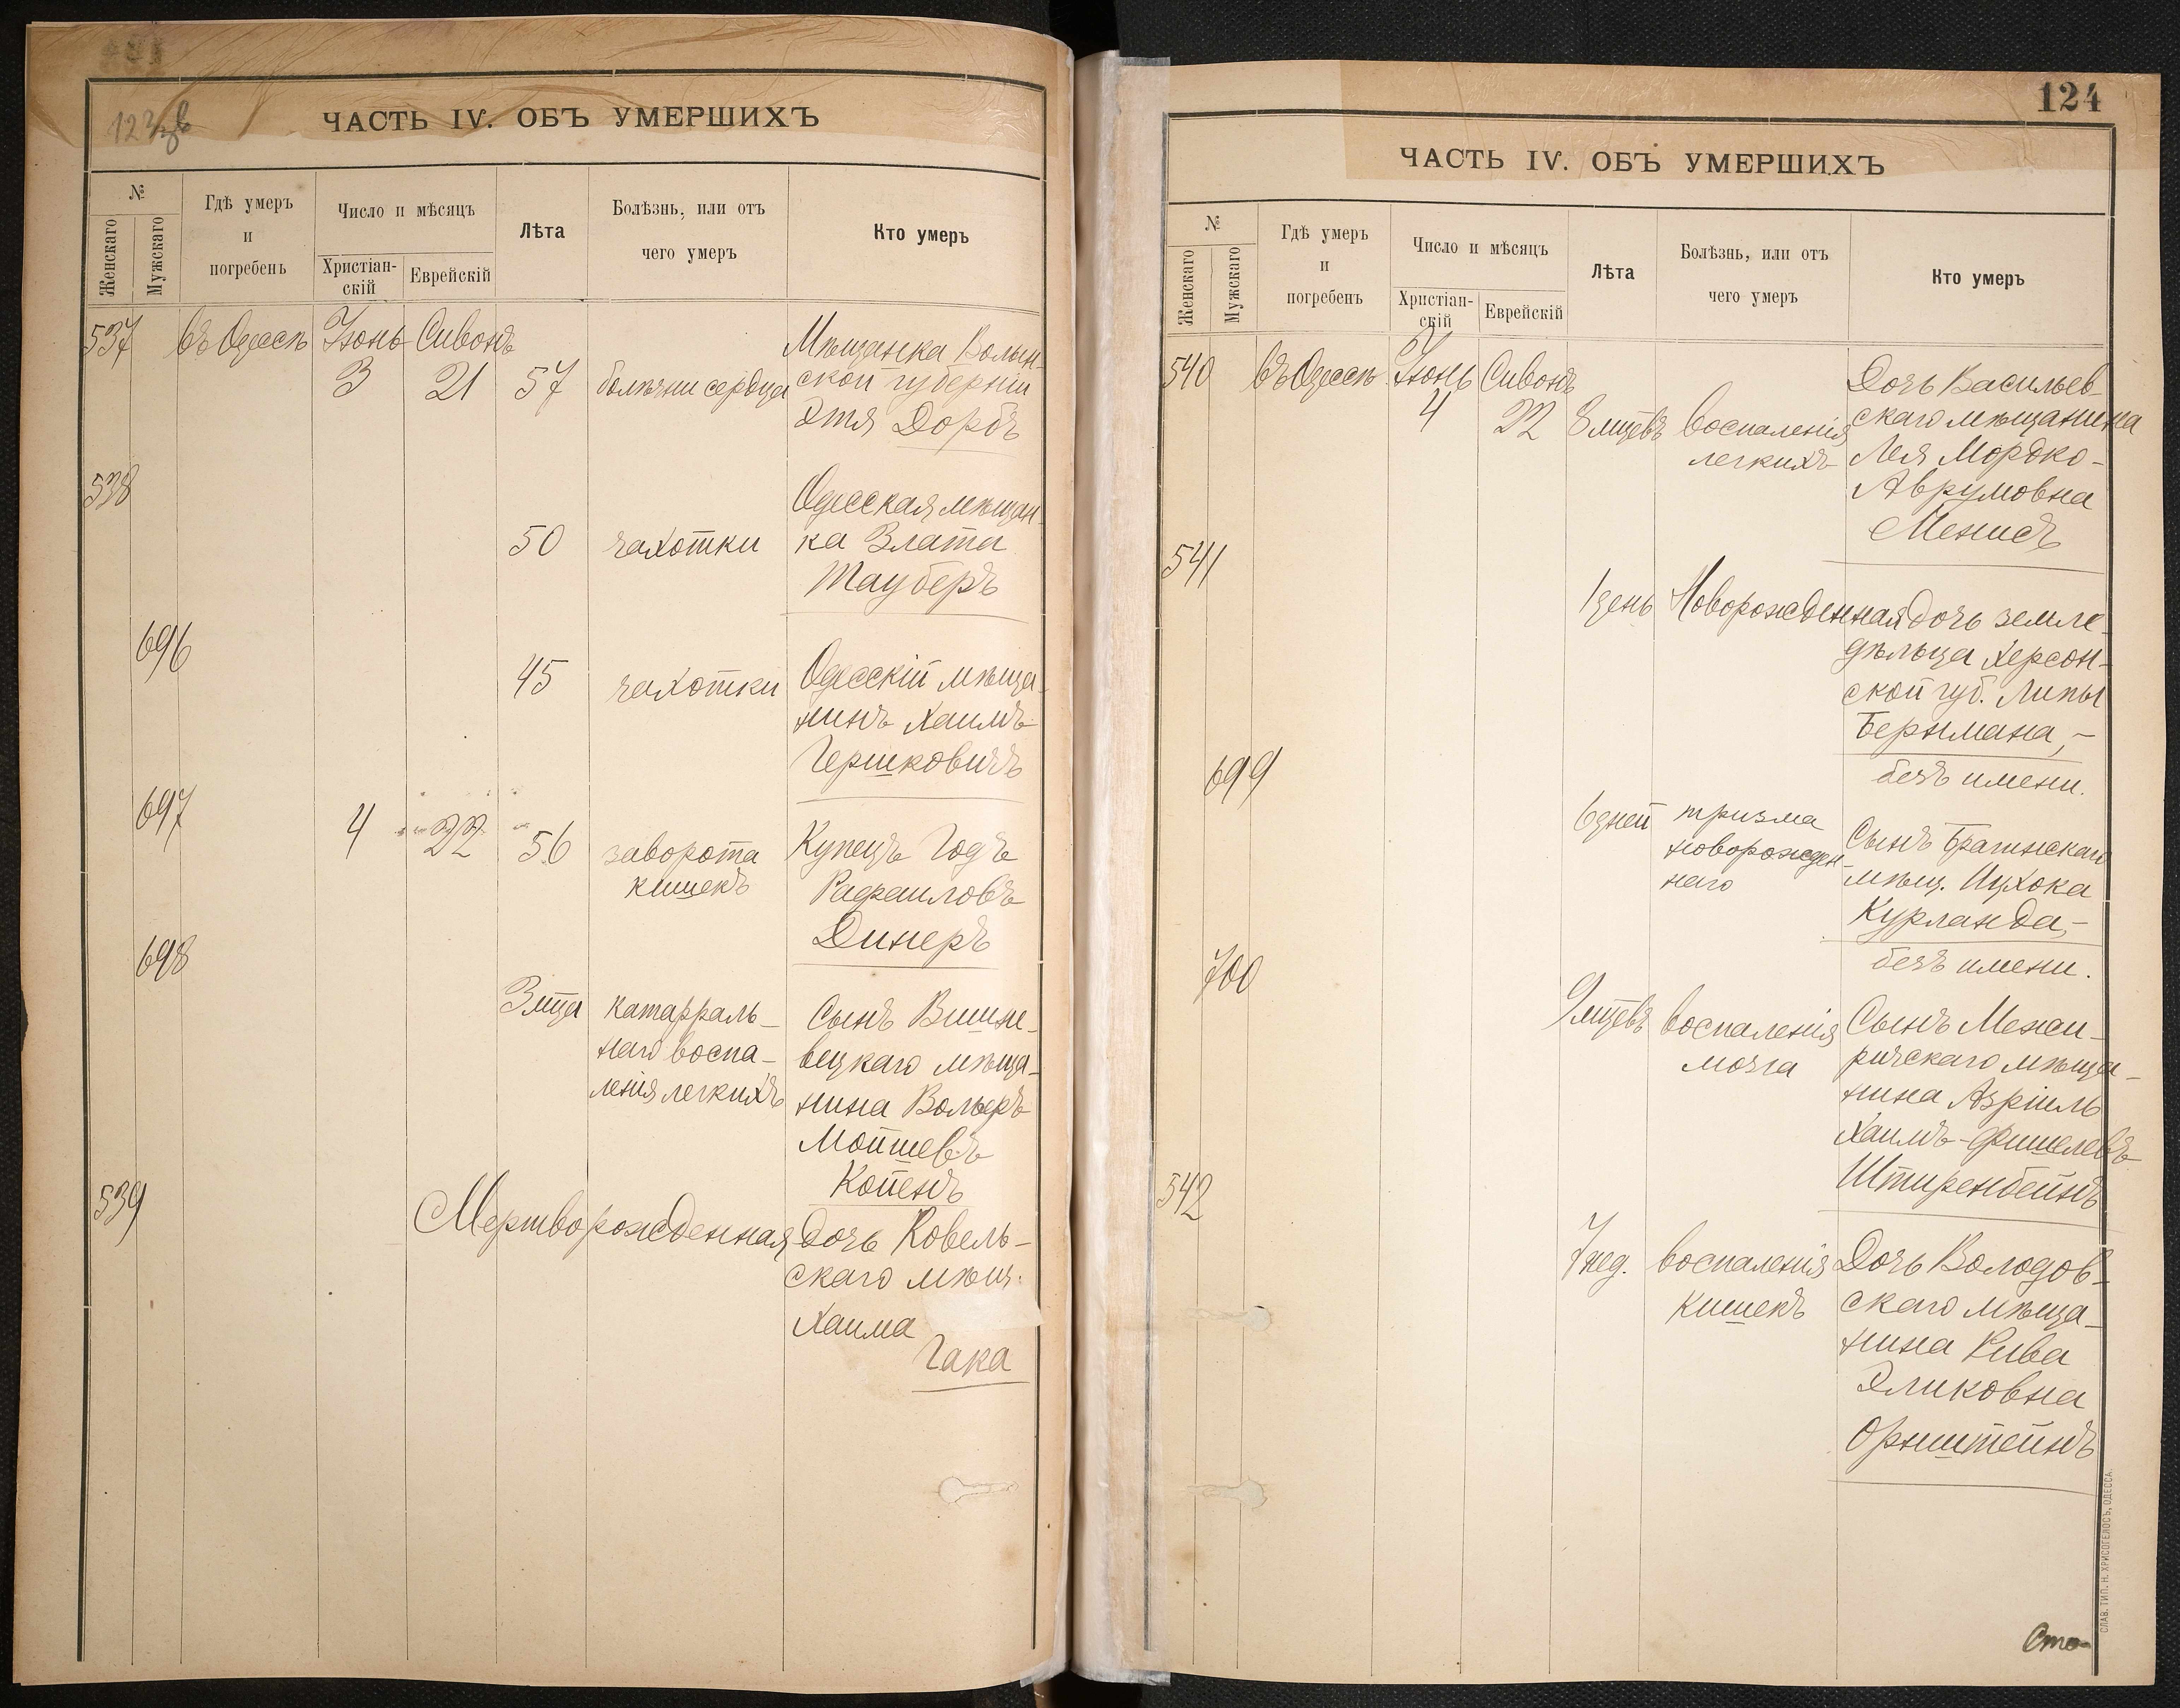 123/зв
ЧАСТЬ IV. ОБЪ УМЕРШИХЪ
№
Женскаго
Мужскаго
Гдѣ умеръ
и
погребенъ
Число и мѣсяцъ
Христіан-
скій
Еврейскій
Лѣта
Болѣзнь, или отъ
чего умеръ
Кто умеръ
537 въ Одессѣ Іюнь Сивонъ
3 21 57 болѣзни сердца
Мѣщанка Волын-
ской губерніи
Этя Дорбъ
538
50 чахотки
Одесская мѣщан-
ка Злата
Тауберъ
696
45 чахотки
Одесскій мѣща-
нинъ Хаимъ
Гершковичъ
697
4 22 56 заворота
кишекъ
Купецъ Годъ
Рафаиловъ
Динеръ
698
3 мца катарраль-
наго воспа-
ленія легкихъ
Сынъ Вишне-
вецкаго мѣща-
нина Вольеръ
Мойшевъ
Койенъ
539
Мертворожденная дочь Ковель-
скаго мѣщ.
Хаима
Гака
124
ЧАСТЬ IV. ОБЪ УМЕРШИХЪ
№
Женскаго
Мужскаго
Гдѣ умеръ
и
погребенъ
Число и мѣсяцъ
Христіан-
скій
Еврейскій
Лѣта
Болѣзнь, или отъ
чего умеръ
Кто умеръ
540 въ Одессѣ Іюнь Сивонъ
4 22 8 мцевъ воспаленія
легкихъ
Дочь Васильев-
скаго мѣщанина
Лея Мордко-
Аврумовна
Менисъ
541
1 день Новорожденная дочь земле-
дѣльца Херсон-
ской губ. Липы
Бермана,-
безъ имени.
699
6 дней тризма
новорожден-
наго
Сынъ Брагинскаго
мѣщ. Ицхока
Курланда,-
безъ имени.
700
9 мцевъ воспаленія
мозга
Сынъ Межи-
ричскаго мѣща-
нина Азріиль
Хаимъ-Фишелевъ
Штиренбейнъ
542
7 нед. воспаленія
кишекъ
Дочь Володов-
скаго мѣща-
нина Рива
Эликовна
Орнштейнъ
Сто-
СЛАВ. ТИП. Н. ХРИСОГЕЛОСЪ, ОДЕССА.